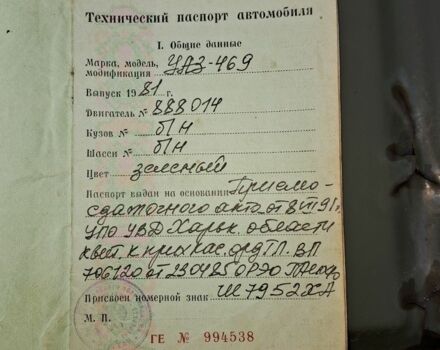 Технический паспорт автомобиля
I. Общие данные
Марка, модель, УАЗ-469
модификация
Выпуск 1981 г.
Двигатель № 888014
Кузов № б/н
Шасси № б/н
Цвет зеленый
Паспорт выдан на основании Приемо-
сдаточного акта от 8 VII 91 г.
УПО УВД Харьк. области
квит. к прих кас. орд ТЛ. ВЛ
706720 от 230485 ОРЭО
Присвоен номерной знак Ш7952ХА
М. П.
ГЕ № 994538